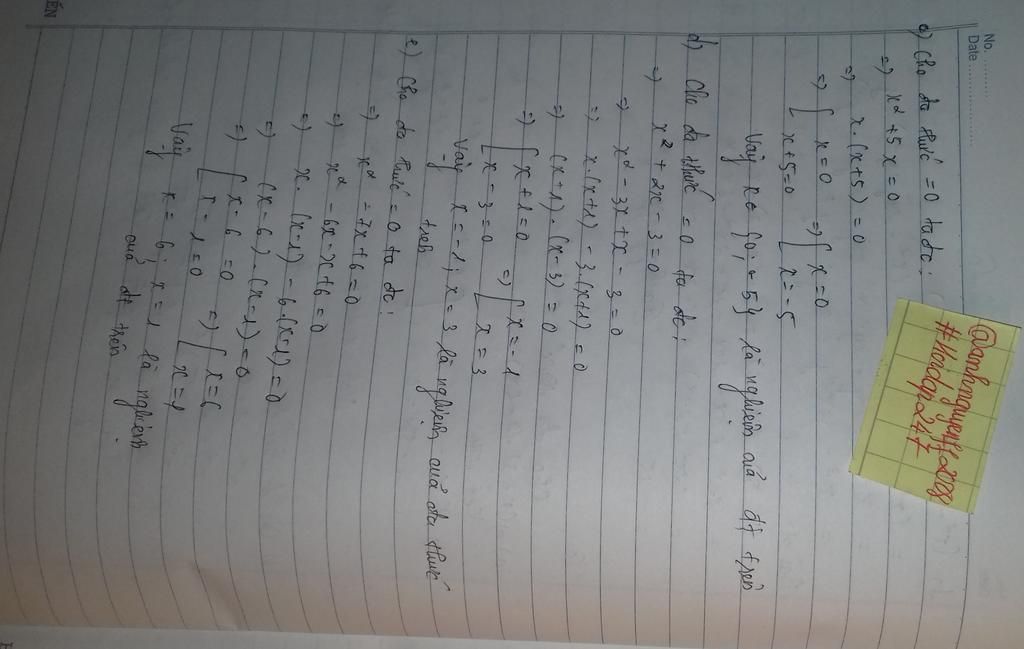 No.
Date
c) Cho đa thức = 0 ta đc:
=) x² + 5x = 0
=) x.(x+5) = 0
=) [ x = 0 =) [ x = 0
x+5=0 x = -5
Vậy x ∈ {0; -5} là nghiệm của đt trên
d) Cho đa thức = 0 ta đc:
=) x² + 2x - 3 = 0
=) x² - 3x + x - 3 = 0
=) x.(x+1) - 3.(x+1) = 0
=) (x+1).(x-3) = 0
=) [ x+1=0 =) [ x = -1
x-3=0 x = 3
Vậy x = -1; x = 3 là nghiệm của đa thức
trên
e) Cho đa thức = 0 ta đc:
=) x² - 7x + 6 = 0
=) x² - 6x - x + 6 = 0
=) x.(x-1) - 6.(x-1) = 0
=) (x-6).(x-1) = 0
=) [ x-6=0 =) [ x = 6
x-1=0 x = 1
Vậy x = 6; x = 1 là nghiệm
của đt trên.
#Hoidap247
ÊN